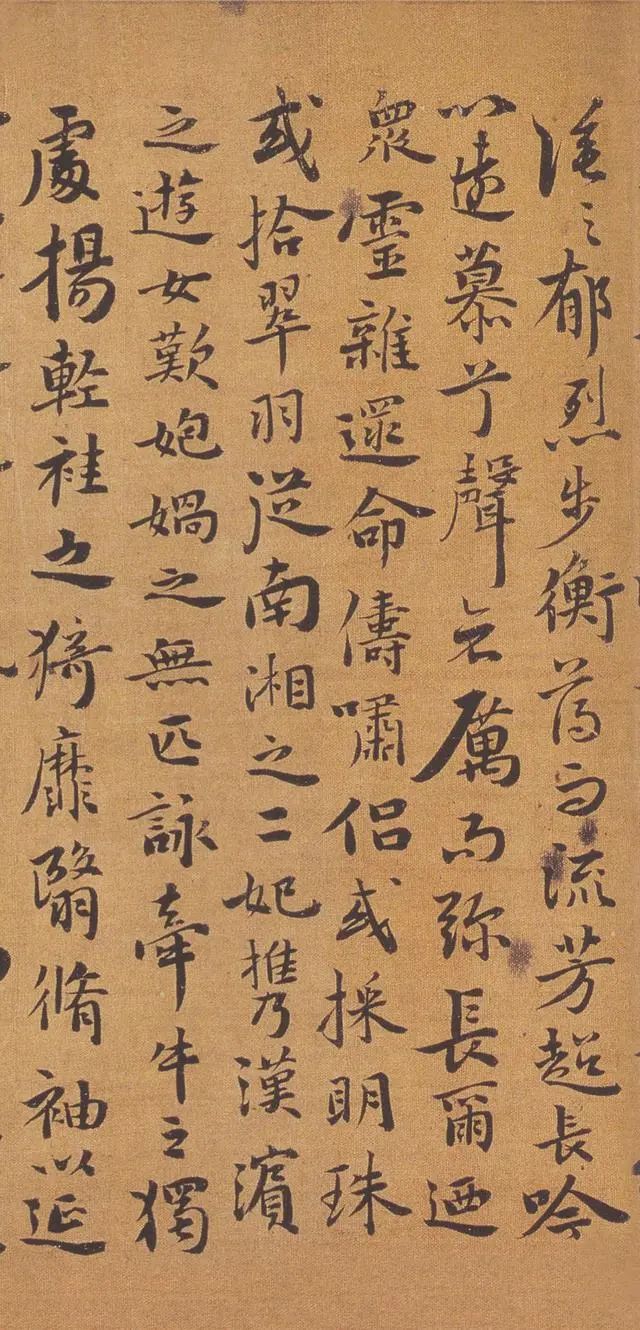 塗之郁烈步衡薄而流芳超長吟
以遠慕兮聲哀厲而弥長爾迺
眾靈雜遝命儔嘯侶或採明珠
或拾翠羽從南湘之二妃攜漢濱
之遊女歎㚿媧之無匹詠牽牛之獨
處揚輕袿之猗靡翳脩袖以延